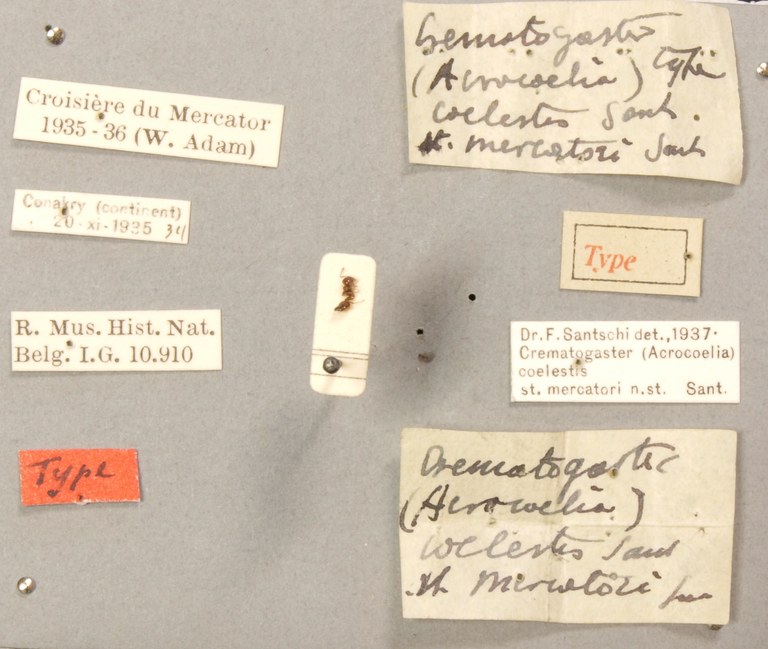 Croisière du Mercator
1935-36 (W. Adam)
Conakry (continent)
20-xi-1935 34
R. Mus. Hist. Nat.
Belg. I.G. 10.910
Type
Crematogaster
(Acrocoelia) type
coelestis Sants.
st. mercatori Sants
Type
Dr. F. Santschi det., 1937.
Crematogaster (Acrocoelia)
coelestis
st. mercatori n.st. Sant.
Crematogaster
(Acrocoelia)
coelestis Sant
st. mercatori